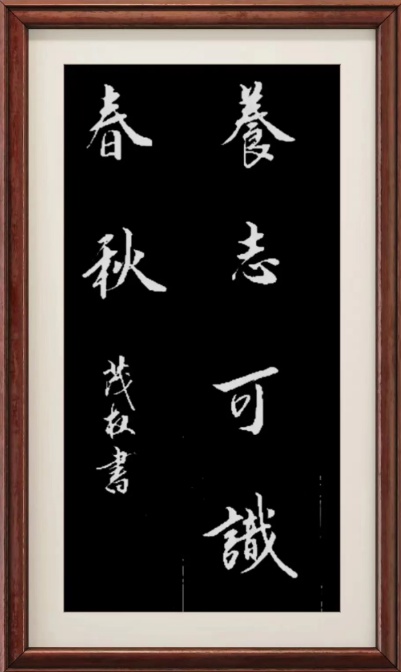 養志可識
春秋
茂权書